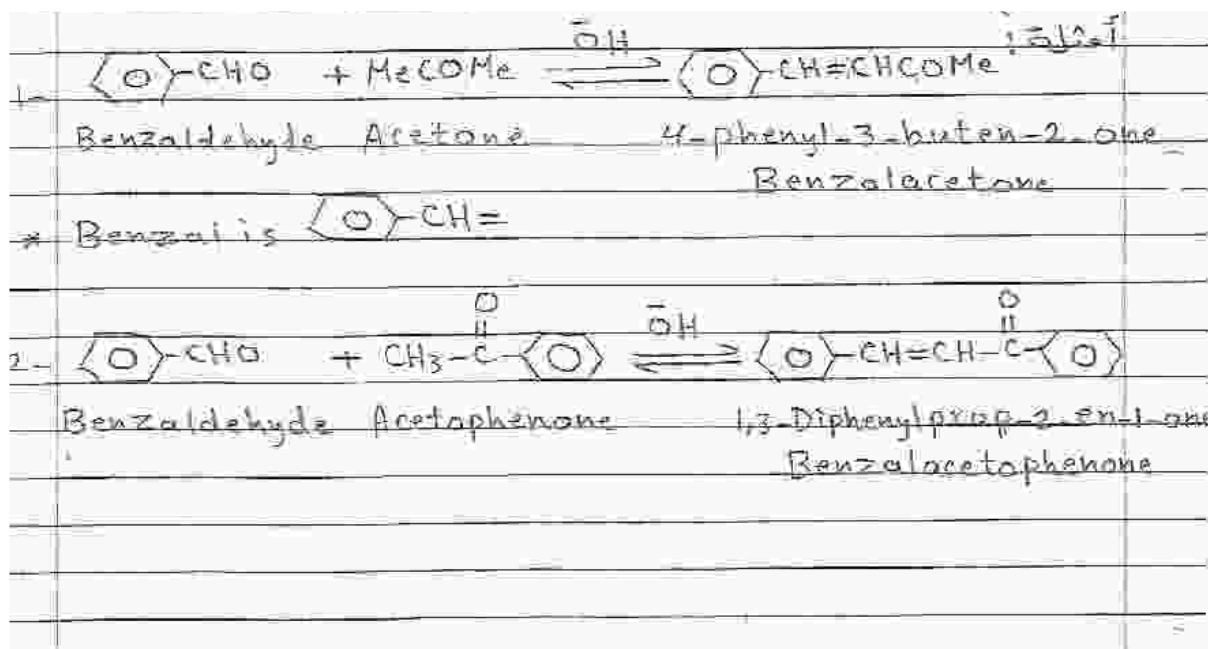 أمثلة :
ŌH
1- CHO + MeCOMe ⇌ CH=CHCOMe
Benzaldehyde Acetone 4-phenyl-3-buten-2-one
Benzalacetone
* Benzal is CH=
O ŌH O
2- CHO + CH3-C- ⇌ CH=CH-C-
Benzaldehyde Acetophenone 1,3-Diphenylprop-2-en-1-one
Benzalacetophenone